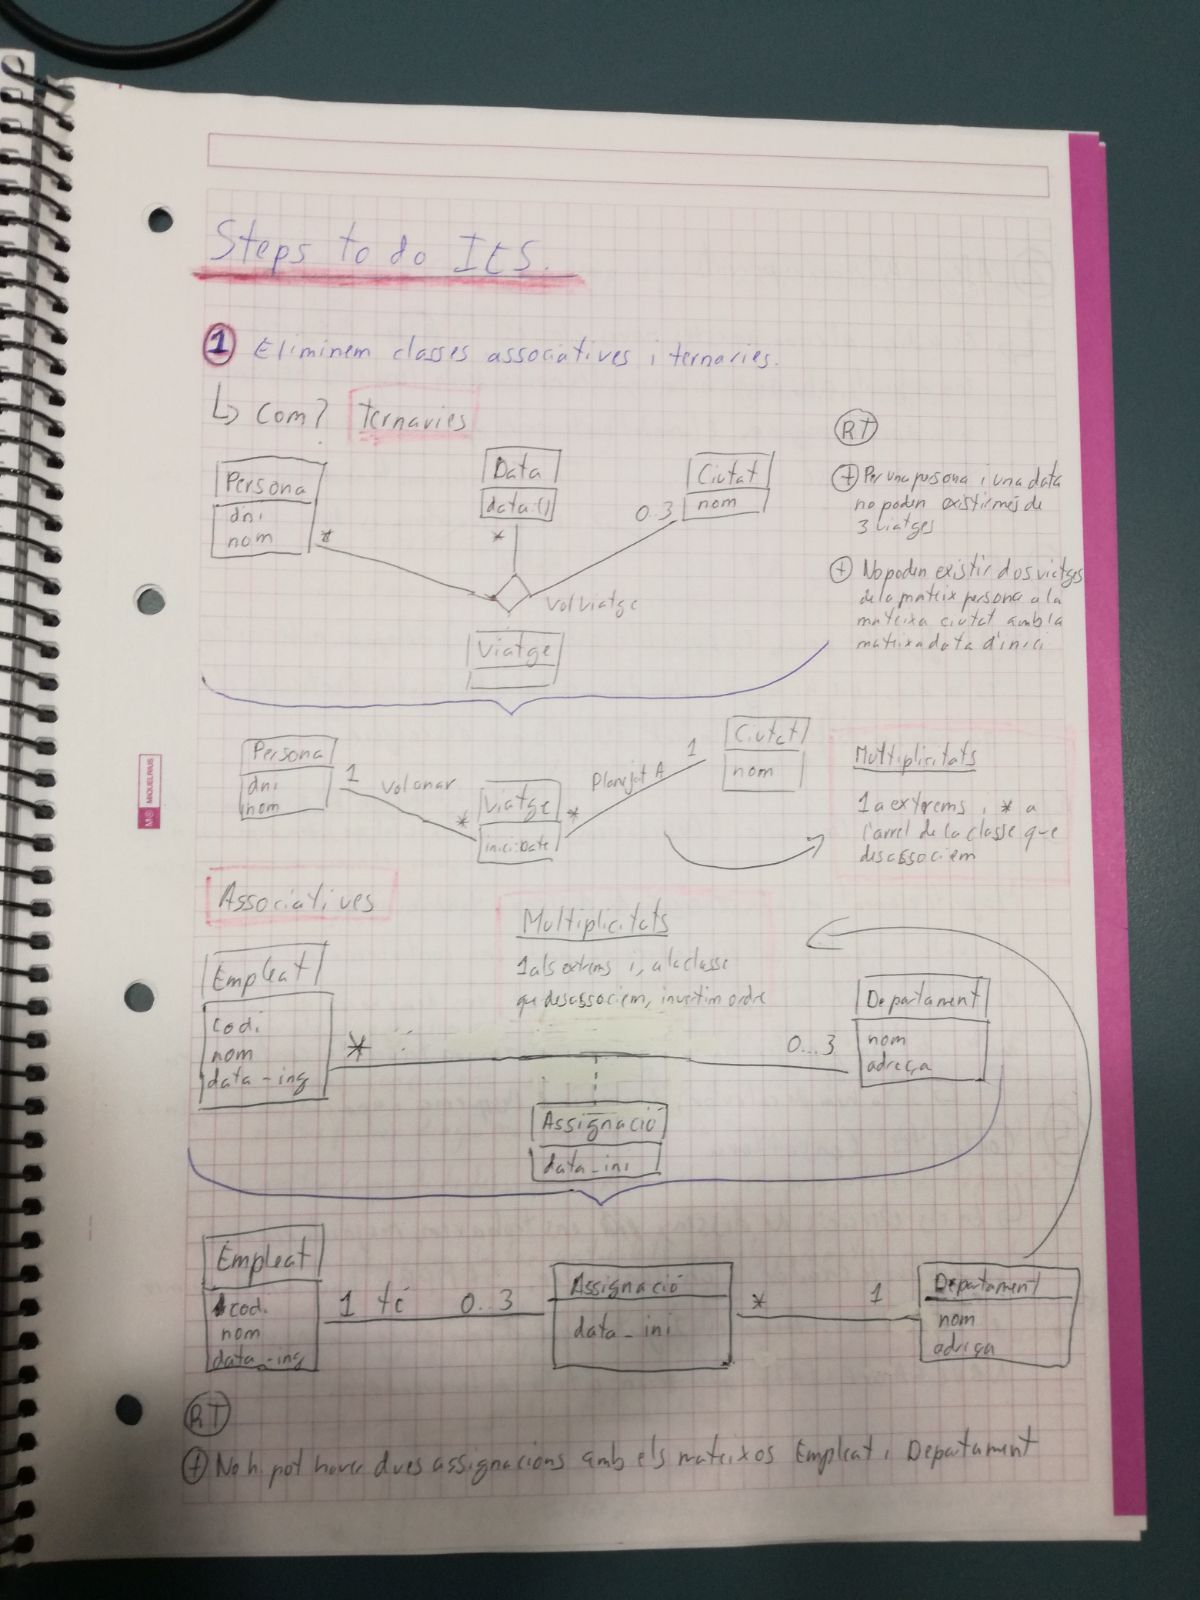 Steps to do IES.
1 Eliminem classes associatives i ternaries.
↳ Com? ternaries
RT
Persona
dni
nom
*
Data
data:()
*
Ciutat
nom
0..3
Volviatge
Viatge
+ Per una persona i una data
no poden existir més de
3 viatges
+ No poden existir dos viatges
de la mateix persona a la
mateixa ciutat amb la
mateixa data d'inici
Persona
dni
nom
1 Volanar *
Viatge
inici:Date
* Planejat A 1
Ciutat
nom
Multiplicitats
1 a extrems i * a
l'arrel de la classe que
desassociem
Associatives
Multiplicitats
1 als extrems i, a la classe
que desassociem, invertim ordre
Empleat
codi
nom
data_ing
* 0...3
Departament
nom
adreça
Assignació
data_ini
Empleat
codi
nom
data_ing
1 té 0..3
Assignació
data_ini
* 1
Departament
nom
adreça
RT
+ No hi pot haver dues assignacions amb els mateixos Empleat i Departament
MIQUELRIUS